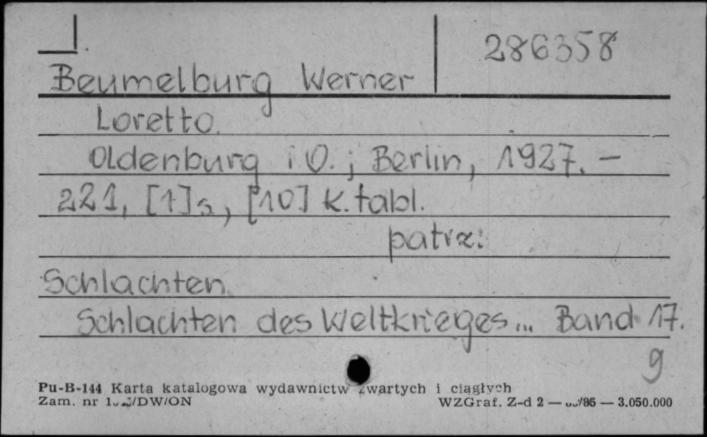 286358
Beumelburg Werner
Loretto.
Oldenburg i O.; Berlin, 1927. –
221, [1] s., [10] k. tabl.
patrz:
Schlachten.
Schlachten des Weltkrieges... Band 17.
9
Pu-B-144 Karta katalogowa wydawnictw zwartych i ciągłych
Zam. nr /DW/ON WZGraf. Z-d 2 — /86 — 3.050.000